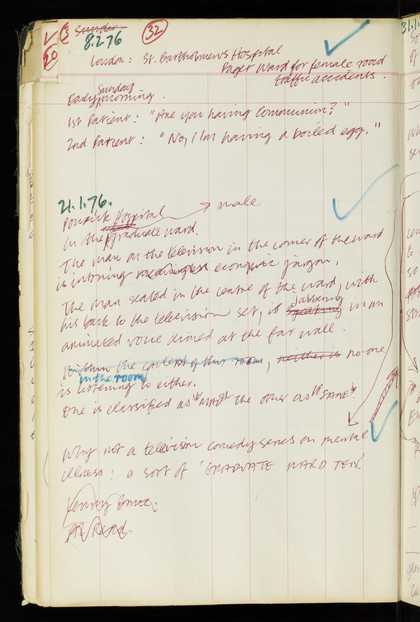 3 Sunday (32)
8.2.76
20
London: St. Bartholmew's Hospital
Paget Ward for female road
traffic accidents.
Sunday
Early morning.
1st Patient: "Are you having Communion?"
2nd Patient: "No, I'm having a boiled egg."
21.1.76.
Hospital → male
In the graduate ward.
The man on the television in the corner of the ward
is intoning economic jargon.
The man seated in the centre of the ward, with
his back to the television set, is jabbering speaking in an
animated voice aimed at the far wall.
Within the context of this room, neither is no-one
in the room
is listening to either.
One is classified as "MAD" the other as "SANE".
Why not a television comedy series on mental
illness: a sort of 'GRADUATE WARD TEN'.